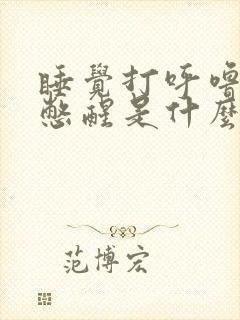 睡覺打呼嚕
憋醒是什麼
范博宏